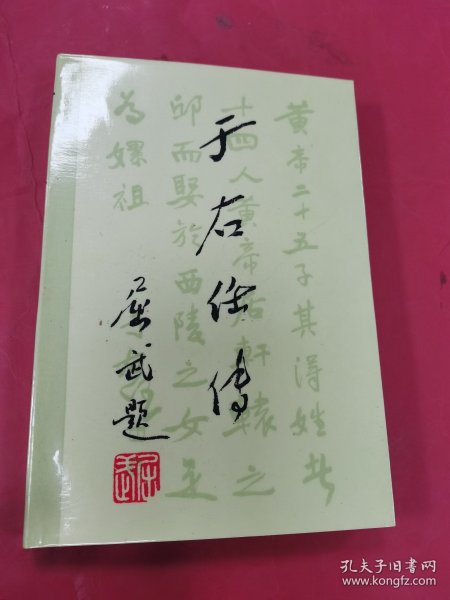 于右任傳
屈武题
屈武
黄帝二十五子其得姓者
十四人黄帝居轩辕之
邱而娶於西陵之女是
為嫘祖
孔夫子旧书网
www.kongfz.com